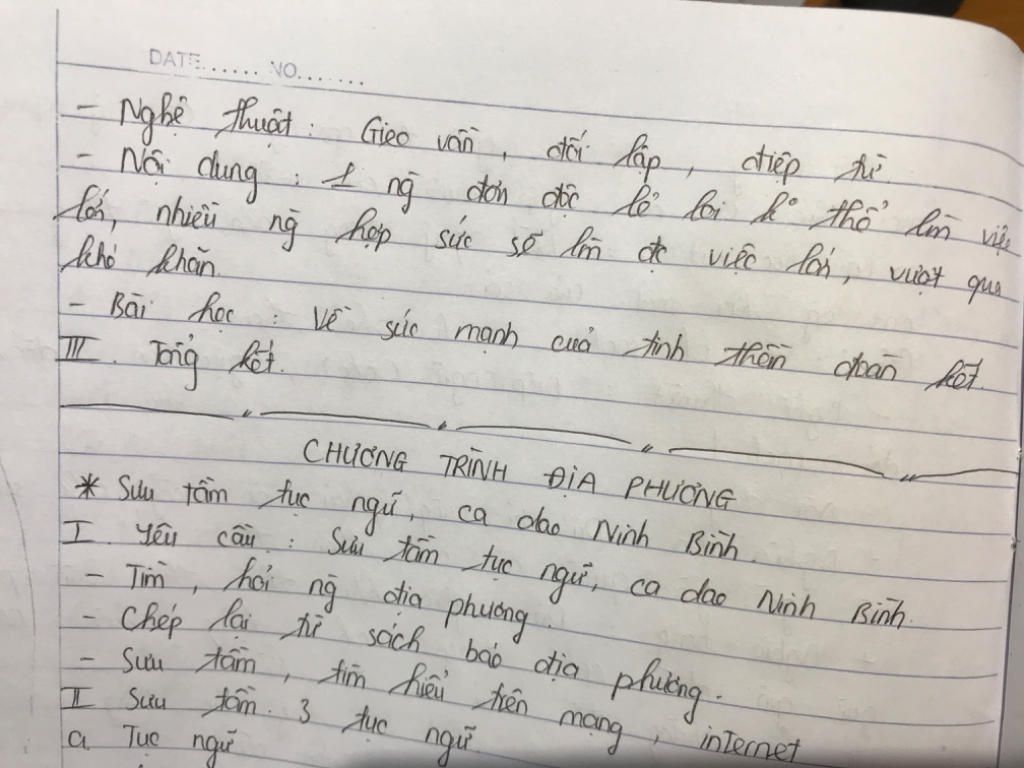 DATE...... NO.......
- Nghệ thuật : Gieo vần, đối lập, điệp từ.
- Nội dung : 1 ng̃ đơn độc lẻ loi k° thể làm việc
lớn, nhiều ng̃ hợp sức sẽ làm đc việc lớn, vượt qua
khó khăn.
- Bài học : Về sức mạnh của tinh thần đoàn kết.
III. Tổng kết.
CHƯƠNG TRÌNH ĐỊA PHƯƠNG
* Sưu tầm tục ngữ, ca dao Ninh Bình.
I. Yêu cầu : Sưu tầm tục ngữ, ca dao Ninh Bình.
- Tìm, hỏi ng̃ địa phương.
- Chép lại từ sách báo địa phương.
- Sưu tầm, tìm hiểu trên mạng, internet
II Sưu tầm. 3 tục ngữ.
a. Tục ngữ